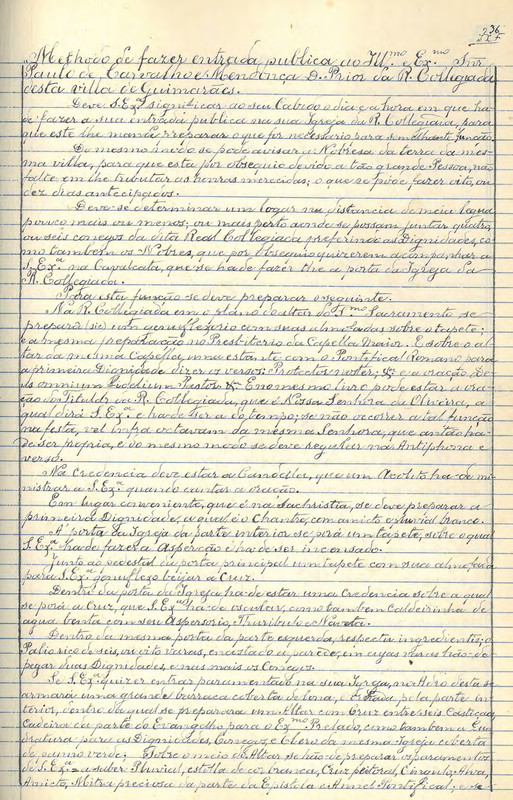 236
Methodo de fazer entrada publica ao Ill.mo e Ex.mo Snr
Paulo de Carvalho e Mendonça D. Prior da R. Collegiada
desta villa de Guimarães.
Deve S. Ex.ª significar ao seu Cabido o dia e a hora em que ha-
de fazer a sua entrada publica na sua Igreja da R. Collegiada, para
que este lhe mande preparar o que for necessario para semelhante função.
Do mesmo modo se pode avisar a Nobresa da terra da mes-
ma villa, para que esta por obsequio devido a tão grande Pessoa, não
falte em lhe tributar as honras merecidas; o que se pode fazer oito, ou
dez dias antecipados.
Deve-se determinar um logar na distancia de meia legua
pouco mais ou menos; ou mais perto aonde se possam juntar quatro,
ou seis conegos da dita Real Collegiada, preferindo as Dignidades, co-
mo tambem os Nobres, que por obsequio quizerem acompanhar a
S. Ex.ª na Cavalcata, que se ha de fazer the a porta da Igreja da
R. Collegiada.
Para esta função se deve preparar o seguinte.
Na R. Collegiada em o plano do altar do S.mo Sacramento se
preparo (sic) um genuflexorio com suas almofadas sobre o tapete;
e a mesma preparação no Presbiterio da Capella Maior. E sobre o al-
tar da mesma Capella, uma estante com o Pontifical Romano para
a primeira Dignidade dizer os versos: Protector noster, & e a oração Deus
omnium Fidelium Pastor & E no mesmo livro pode estar a ora-
ção do Titular da R. Collegiada, que é Nossa Senhora da Oliveira, a
qual dirá S. Ex.ª e ha de ser a do tempo; se não occorrer a tal função
na festa, vel infra octavam da mesma Senhora, que então ha-
de ser propria, e do mesmo modo se deve regular na Antiphona e
verso.
Na Credencia deve estar a Canon, que um Acolito ha-de mi-
nistrar a S. Ex.ª quando cantar a oração.
Em lugar conveniente, que é na Sachristia, se deve preparar a
primeira Dignidade, a qual é o Chantre, com amicto e pluvial branco.
Á porta da Igreja da parte interior se porá um tapete, sobre o qual
S. Ex.ª ha de fazer a Asperção e ha de ser incensado.
Junto ao pedestal da porta principal um tapete com sua almofada
para S. Ex.ª genuflexo beijar a Cruz.
Dentro da porta da Igreja ha-de estar uma Credencia sobre a qual
se porá a Cruz, que S. Ex.ª ha-de oscular, como tambem Caldeirinha de
agua benta com seu Aspersorio, Thuribulo e Naveta.
Dentro da mesma porta da parte esquerda, respectu ingredientis, o
Palio rico de seis, ou oito varas, encostado á parede, em cujas varas hão-de
pegar duas Dignidades, e nas mais os Conegos.
Se S. Ex.ª quizer entrar paramentado na sua Igreja, no Adro desta se
armará uma grande barraca coberta de lona, e pela parte in-
terior, dentro da qual se preparará um Altar com Cruz entre seis Castiçaes,
Cadeira da parte do Evangelho para o Ex.mo Prelado, como tambem a
para as Dignidades, Conegos, e Clero da mesma Igreja coberta
de panno verde; Sobre o meio do Altar se hão-de preparar os paramentos
de S. Ex.ª a saber Pluvial, estolla de cor branca, Cruz peitoral, Cingulo, Alva,
Amicto, Mitra preciosa da parte da Epistola e Annel Pontifical; e se